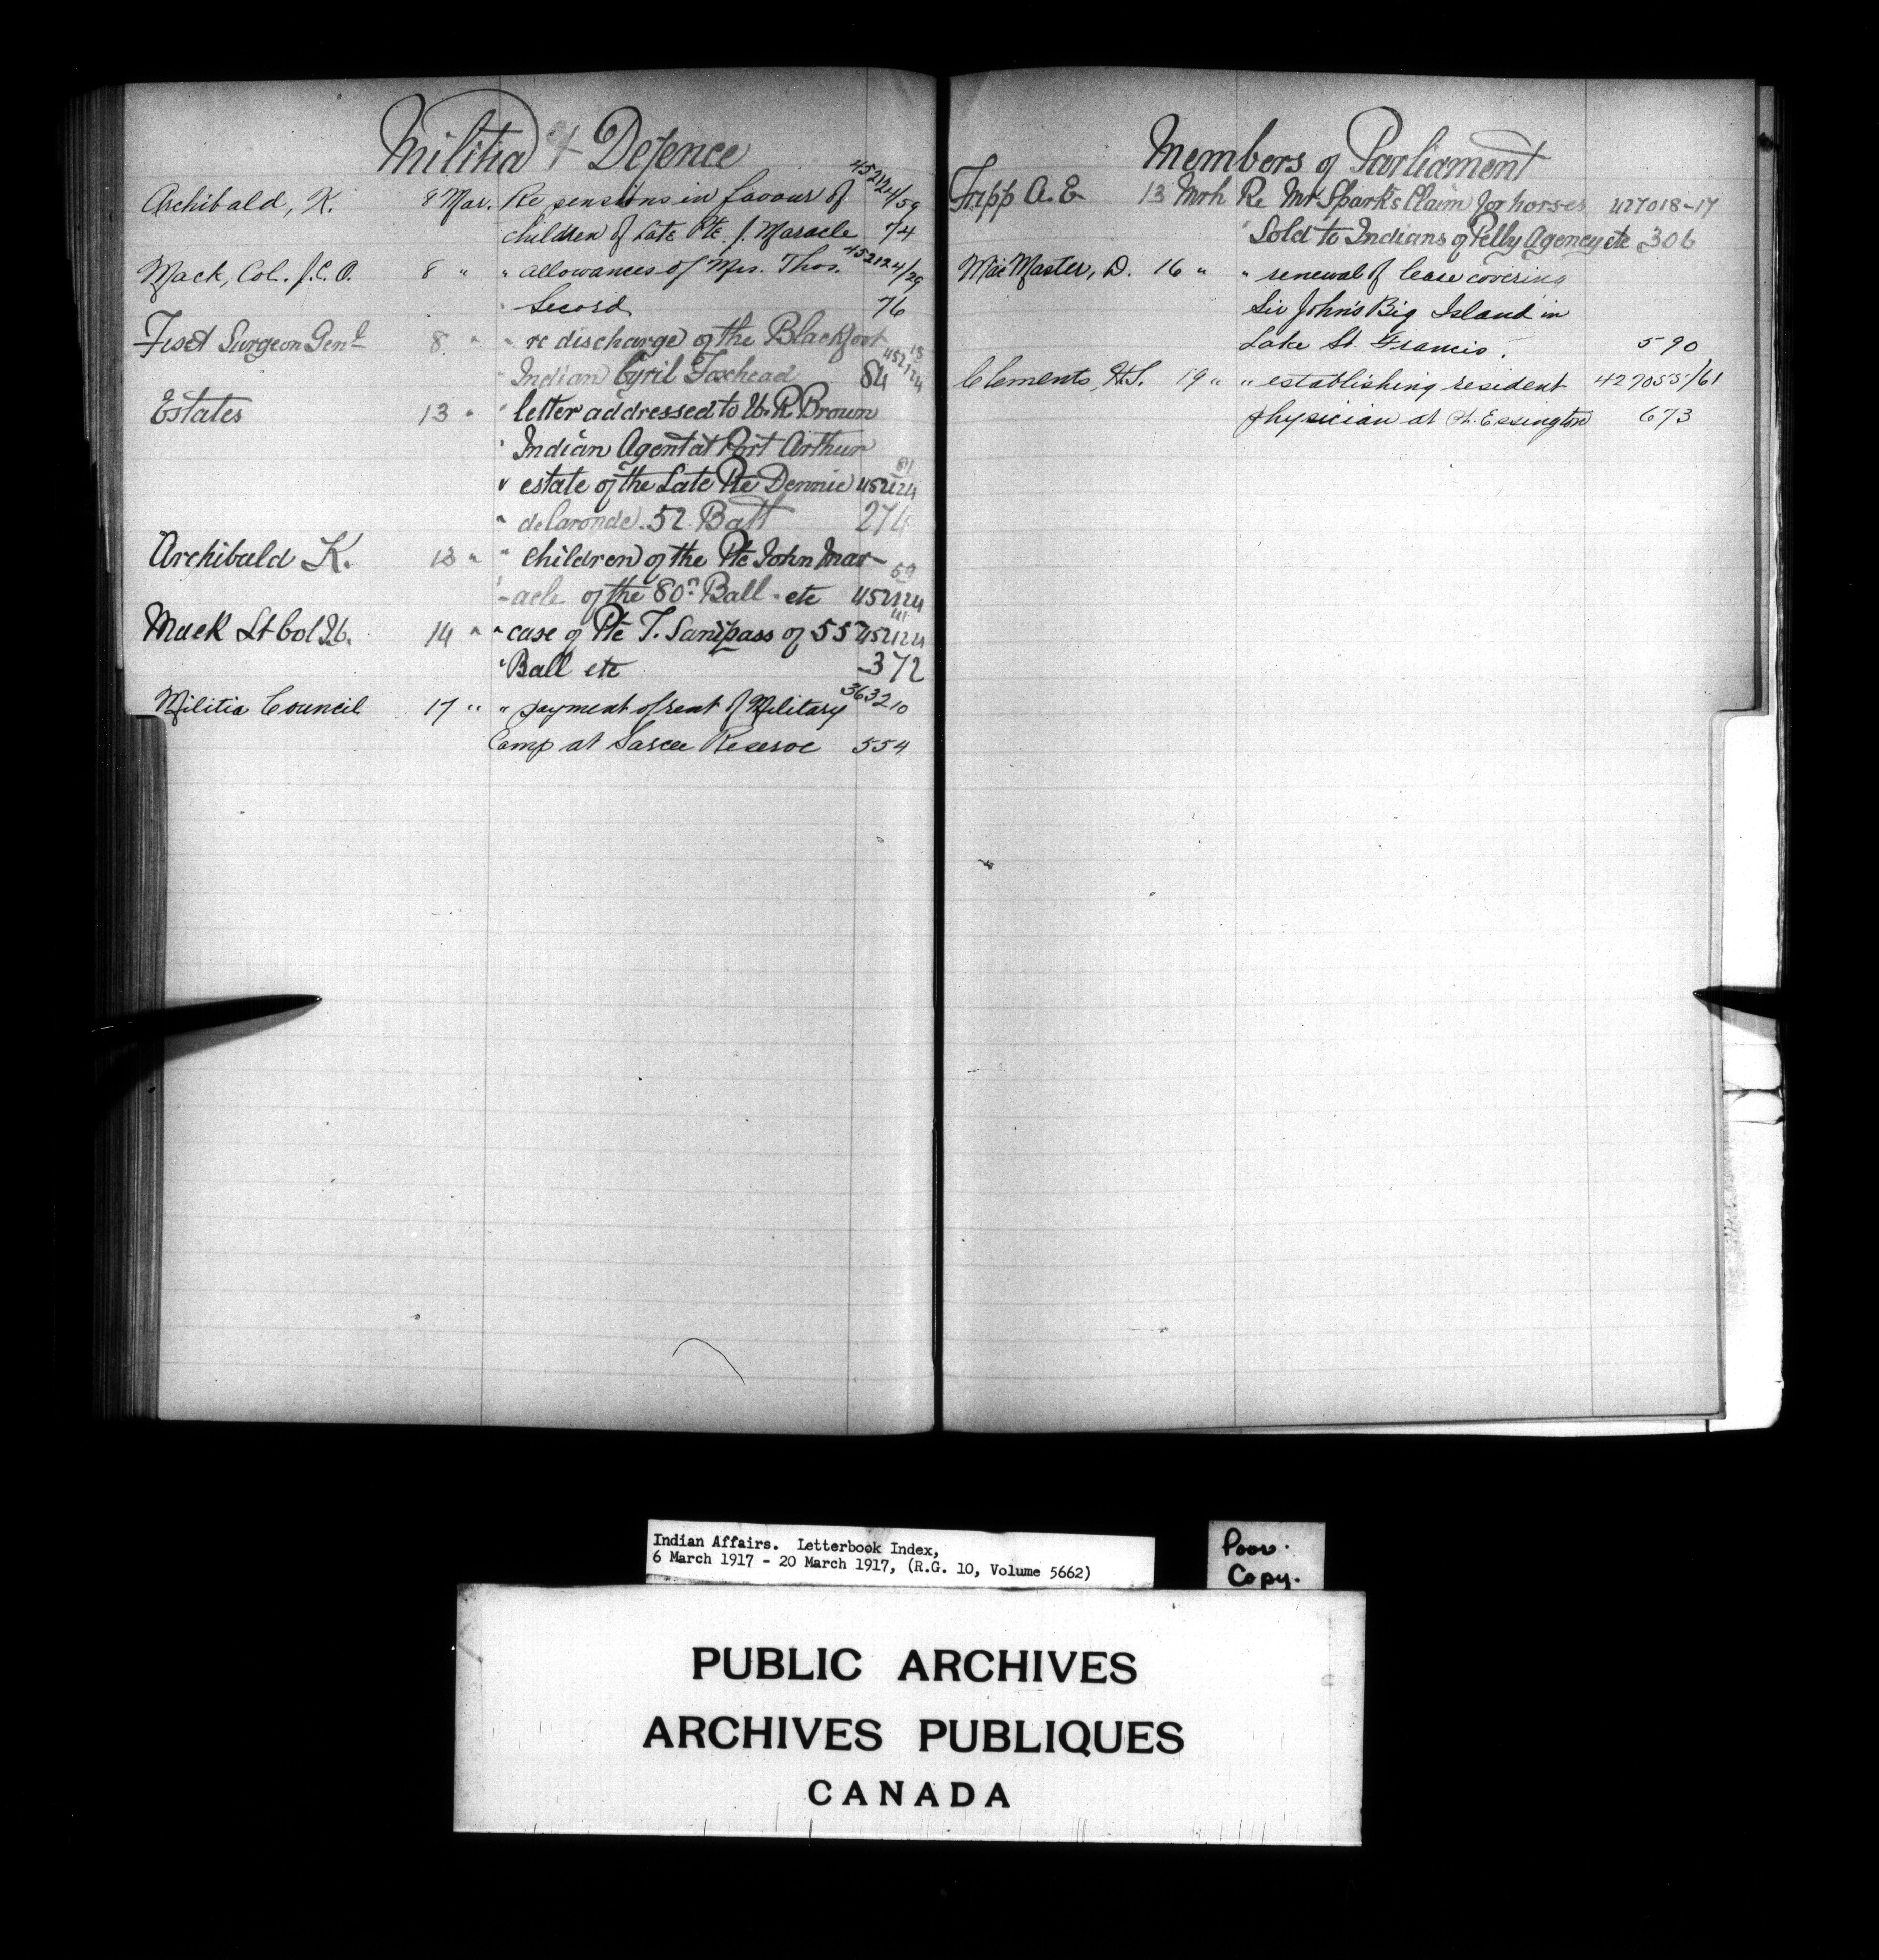 Militia & Defence
Archibald, K. 8 Mar. Re pensions in favour of 452124/59
children of Late Pte. J. Maracle 74
Mack, Col. J.C.O. 8 " " allowances of Mrs. Thos. 452124/29
" Secord 76
Fiset Surgeon Genl 8 " " re discharge of the Blackfoot
" Indian Cyril Foxhead 452124/15 84
Estates 13 " " letter addressed to W. R. Brown
" Indian Agent at Port Arthur
" estate of the Late Pte Dennie 452124/81
" delaronde. 52. Batt 274
Archibald K. 13 " " children of the Pte John Mar-
" -acle of the 80th Ball. etc 452124/59
Mack Lt Col 14 " " case of Pte T. Sampass of 55 452124
" Ball etc 372
Militia Council 17 " " payment of rent of Military 363210
Camp at Sarcee Reserve 554
Members of Parliament
Tripp A. E 13 Mrh Re Mr Spark's Claim for horses 427018-17
" Sold to Indians of Pelly Agency etc 306
MacMaster, D. 16 " " renewal of lease covering
Sir John's Big Island in
Lake St. Francis. 590
Clements, H.S. 19 " " establishing resident 427055/61
physician at Pt. Essington 673
Indian Affairs. Letterbook Index,
6 March 1917 - 20 March 1917, (R.G. 10, Volume 5662)
Poor.
Copy.
PUBLIC ARCHIVES
ARCHIVES PUBLIQUES
CANADA